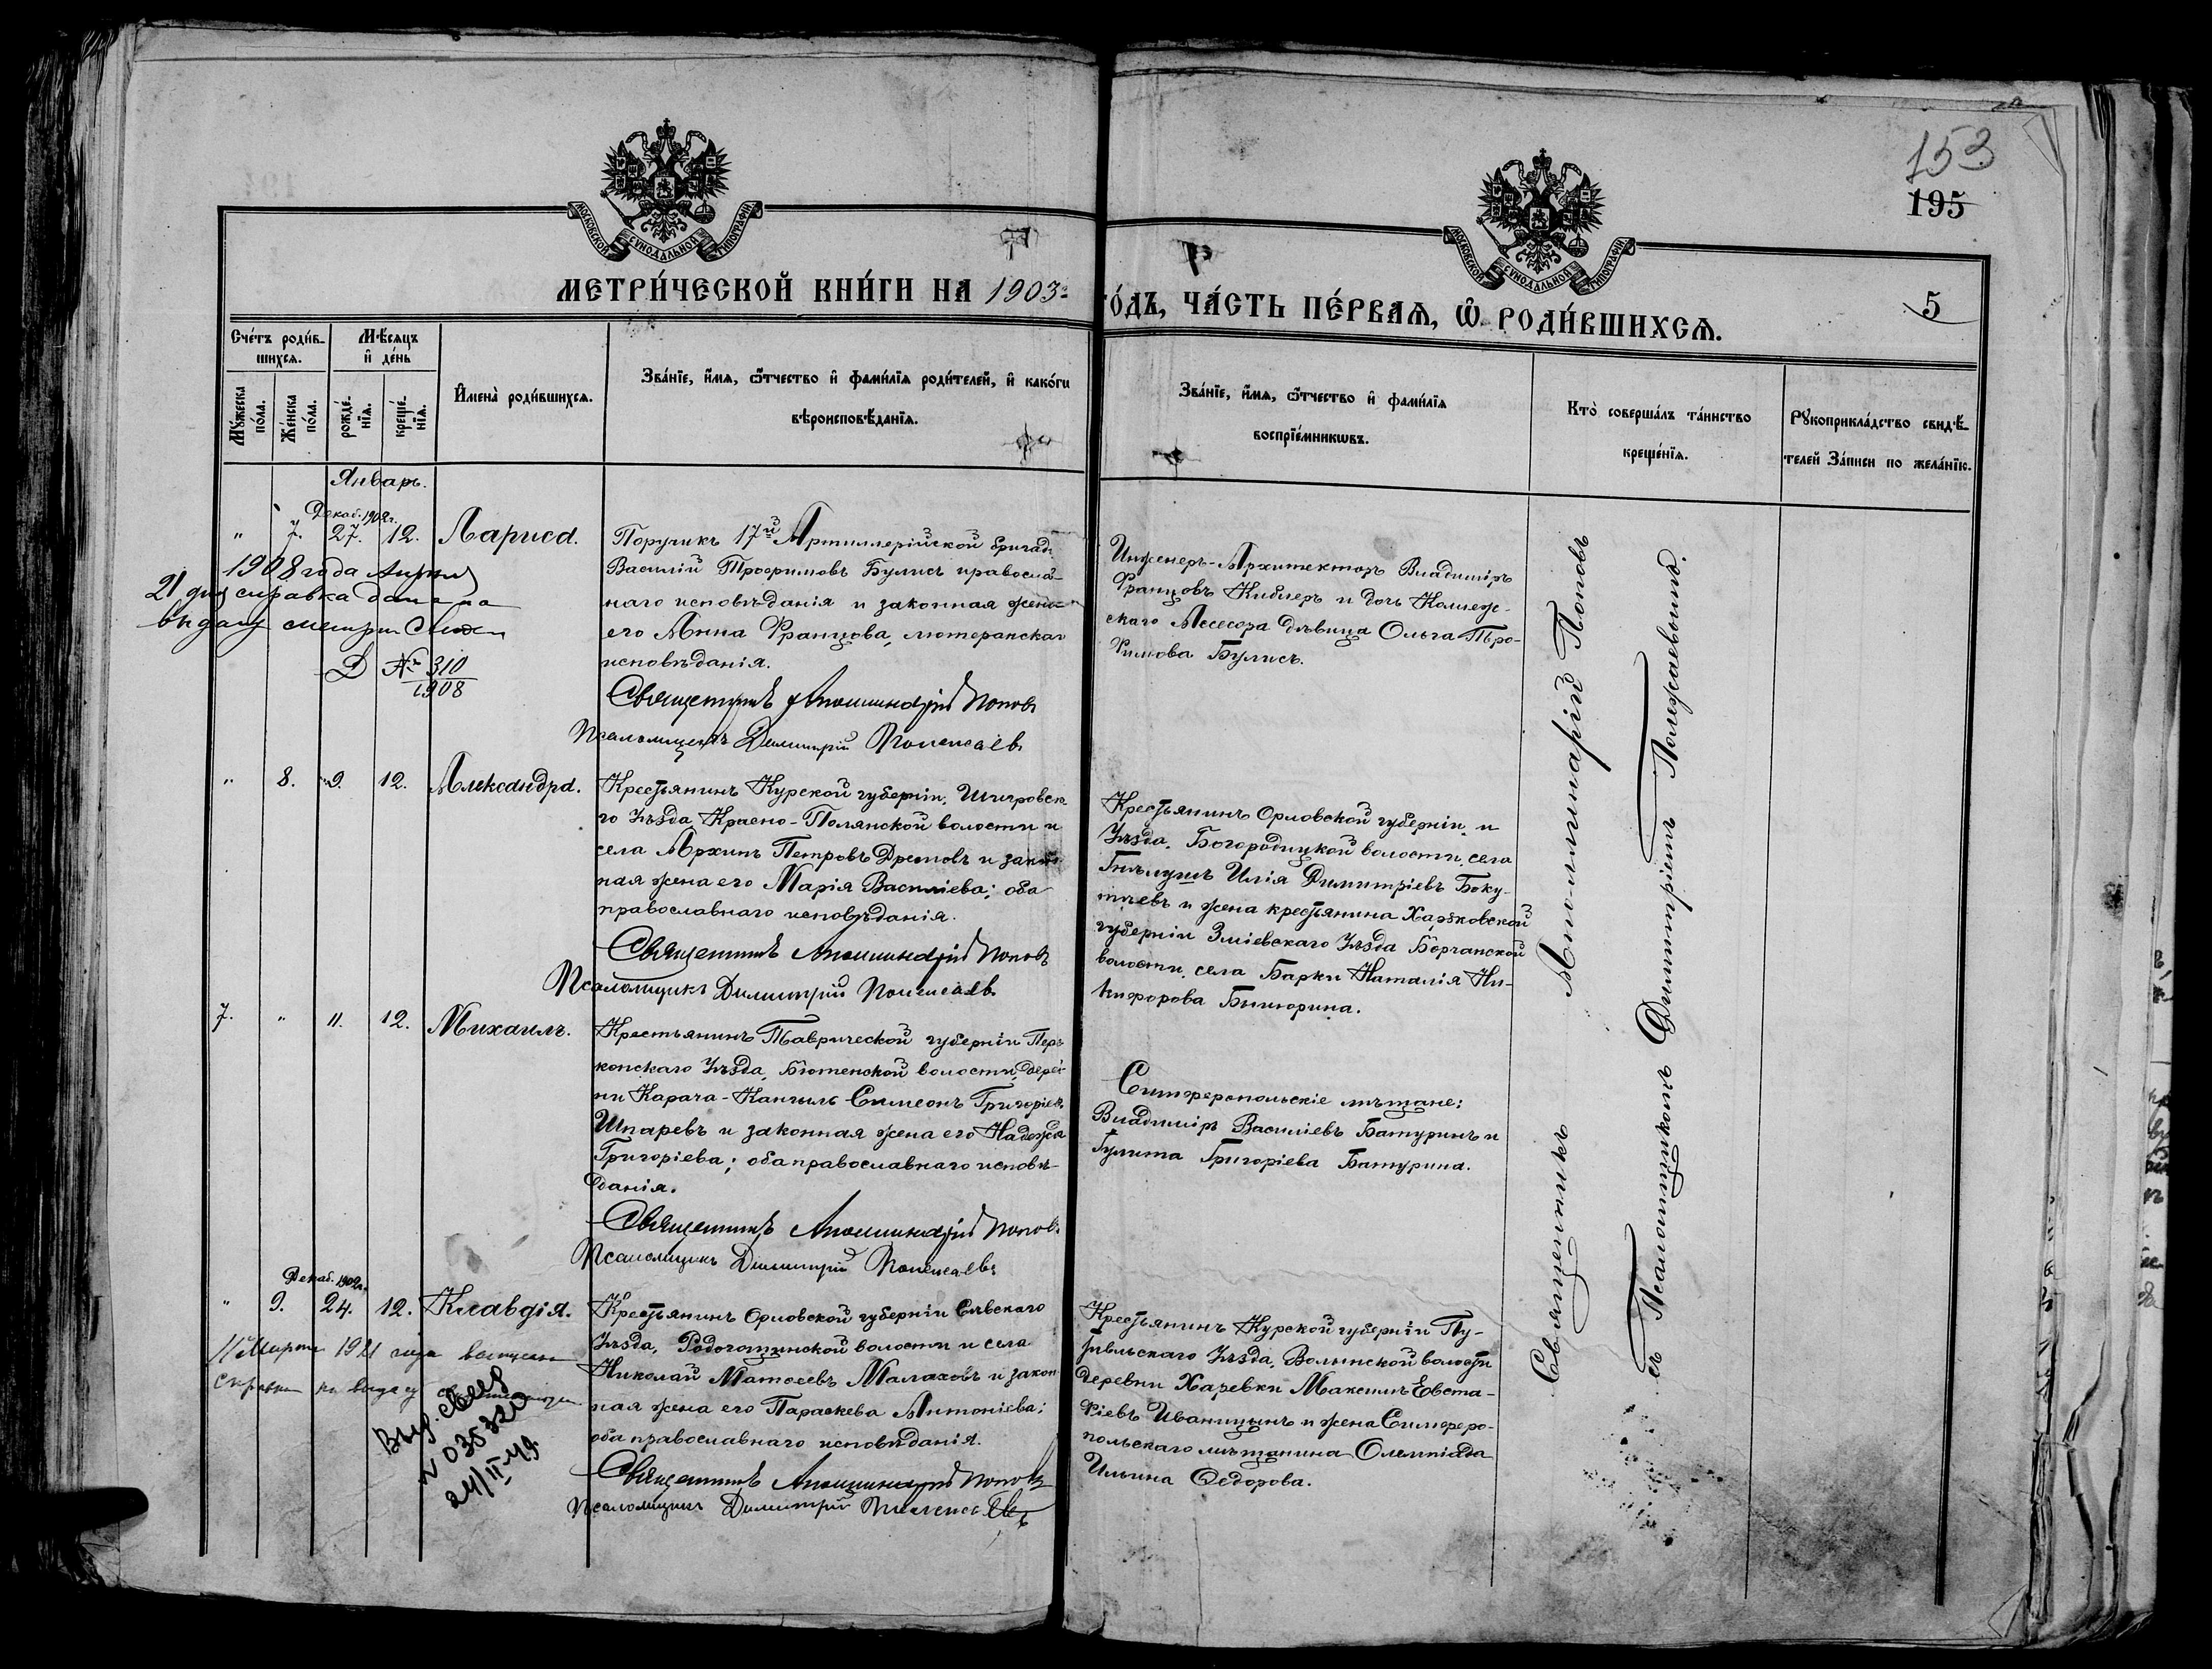 153
195
МОСКОВСКОЙ СѴНОДАЛЬНОЙ ТИПОГРАФІИ
МОСКОВСКОЙ СѴНОДАЛЬНОЙ ТИПОГРАФІИ
МЕТРИ́ЧЕСКОЙ КНИ́ГИ НА 1903 ГО́ДЪ, ЧА́СТЬ ПЕ́РВАѦ, Ѡ҆ РОДИ́ВШИХСѦ.
5
Сче́тъ роди́в-
шихсѧ.
Мꙋжеска
по́ла.
Же́нска
по́ла.
Мѣ́сѧцъ
и҆ де́нь
рожде́-
нїѧ.
креще́-
нїѧ.
И҆мена̀ роди́вшихсѧ.
Зва́нїе, и҆́мѧ, ѻ҆́тчество и҆ фами́лїѧ роди́телей, и҆ како́гѡ
вѣроисповѣ́данїѧ.
Зва́нїе, и҆́мѧ, ѻ҆́тчество и҆ фами́лїѧ
воспрїе́мникѡвъ.
Кто̀ соверша́лъ та́инство
креще́нїѧ.
Рꙋкоприкла́дство свидѣ́-
телей за́писи по жела́нїю.
Январь.
Декаб. 1902 г.
" 7. 27. 12. Лариса.
Поручикъ 17й Артиллерійской бригады
Василій Трофимовъ Булисъ правосла-
наго исповѣданія и законная жена
его Анна Францова, лютеранскаго
исповѣданія.
Священникъ Аполлинарій Поповъ
Псаломщикъ Димитрій Полежаевъ
Инженеръ-Архитекторъ Владиміръ
Францовъ Киблеръ и дочь Коллеж-
скаго Ассесора дѣвица Ольга Тро-
фимова Булисъ.
1908 года Апрѣля
21 дня справка дана на
выдачу метрич. Свид.
№ 310
1908
" 8. 2. 12. Александра.
Крестьянинъ Курской губерніи, Щигровска-
го Уѣзда, Красно-Полянской волости и
села Архипъ Петровъ Дремовъ и закон-
ная жена его Марія Василіева; оба
православнаго исповѣданія.
Священникъ Аполлинарій Поповъ
Псаломщикъ Димитрій Полежаевъ
Крестьянинъ Орловской губерніи и
Уѣзда, Богородицкой волости, села
Гнѣлуши Илія Димитріевъ Боку-
тичевъ и жена крестьянина Харьковской
губерніи Зміевскаго Уѣзда Борчанской
волости, села Барки Наталія Ни-
кифорова Биткорина.
7. " 11. 12. Михаилъ.
Крестьянинъ Таврической губерніи Пере-
копскаго Уѣзда, Бютенской волости, дерев-
ни Карача-Кангылъ Симеонъ Григоріевъ
Шпаревъ и законная жена его Надежда
Григоріева; оба православнаго исповѣ-
данія.
Священникъ Аполлинарій Поповъ
Псаломщикъ Димитрій Полежаевъ
Симферопольскіе мѣщане:
Владиміръ Василіевъ Батуринъ и
Гулита Григоріева Батурина.
Декаб. 1902 г.
" 9. 24. 12. Клавдія.
Крестьянинъ Орловской губерніи Сѣвскаго
Уѣзда, Родогощинской волости и села
Николай Матѳеевъ Малаховъ и закон-
ная жена его Параскева Антоніева;
оба православнаго исповѣданія.
Священникъ Аполлинарій Поповъ
Псаломщикъ Димитрій Полежаевъ
Крестьянинъ Курской губерніи Пу-
тивльскаго Уѣзда, Волынской волости
деревни Харевки Максимъ Евста-
фіевъ Иваницынъ и жена Симферо-
польскаго мѣщанина Олимпіада
Ильина Ѳедорова.
11 Марта 1921 года
справка на выдачу
Выд.
№ 035320
24/II-49
Священникъ Аполлинарій Поповъ
съ Псаломщикомъ Димитріемъ Полежаевымъ.